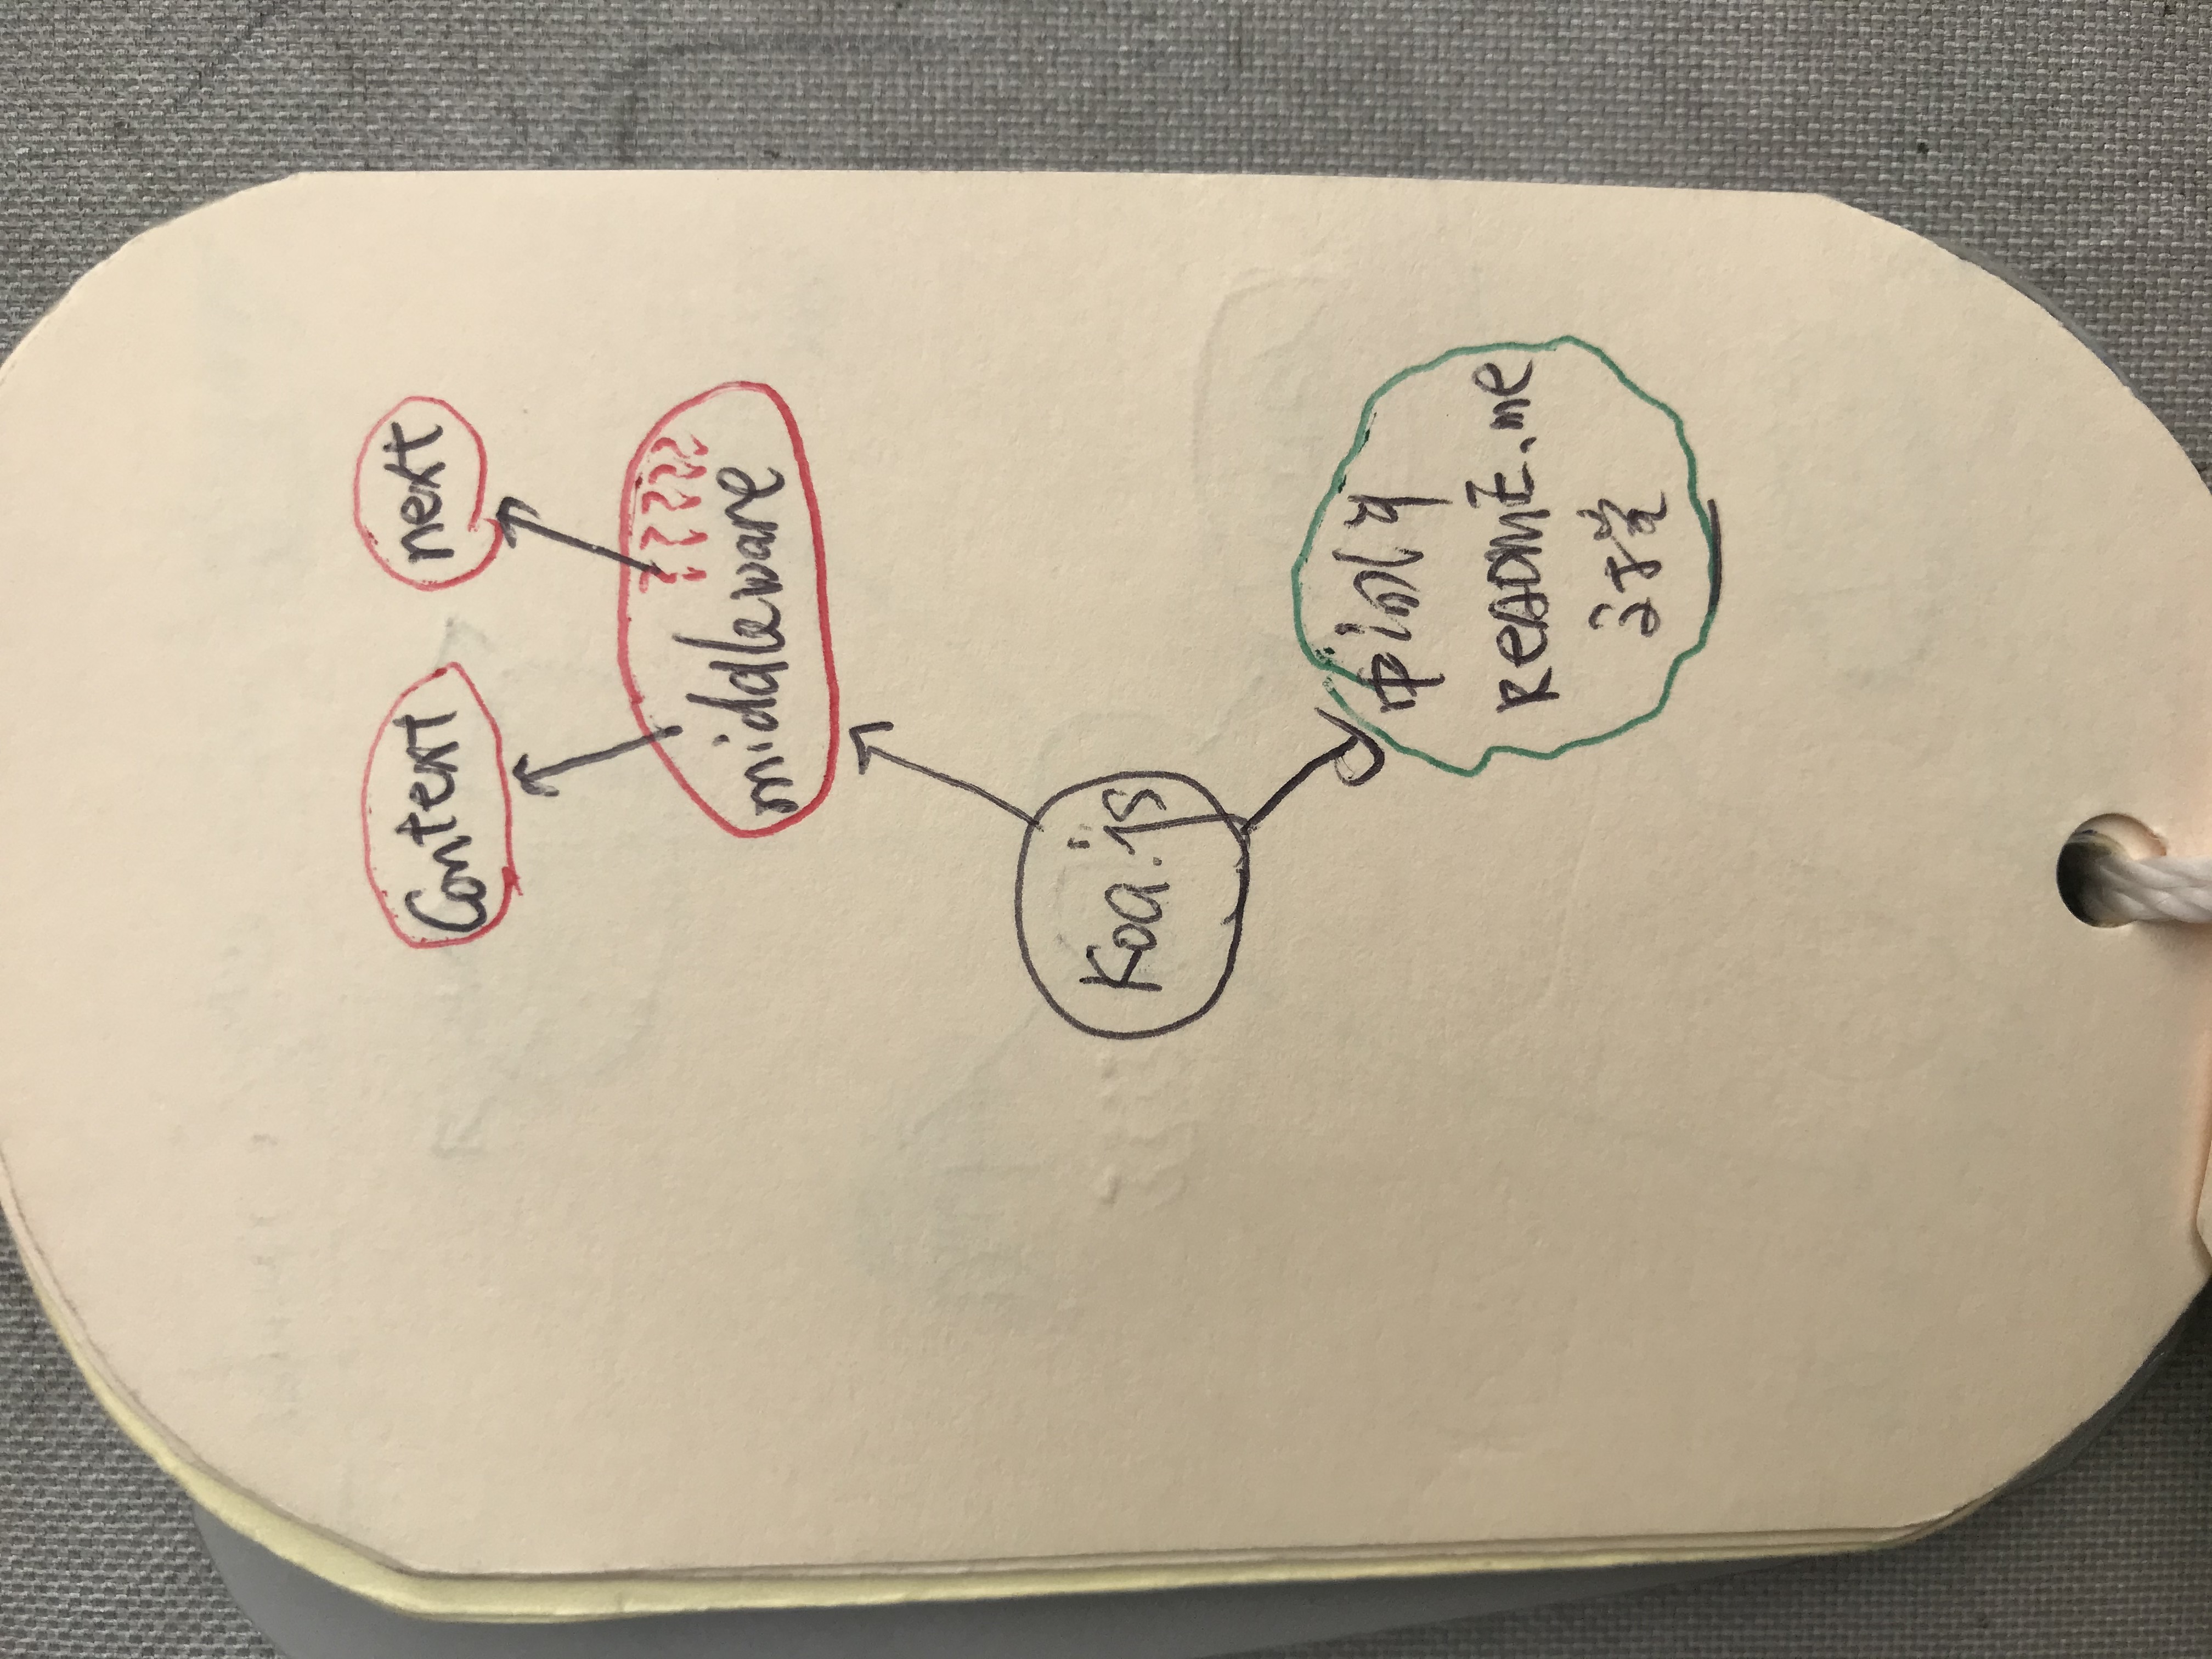 Context
next
?????
middleware
Koa.js
中间件
README.me
文档